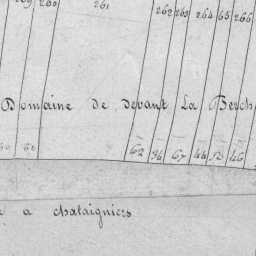 259 260 261 262 263 264 65 266
Domaine de devant La Berch
62 36 67 44 12 46
a chataigniers